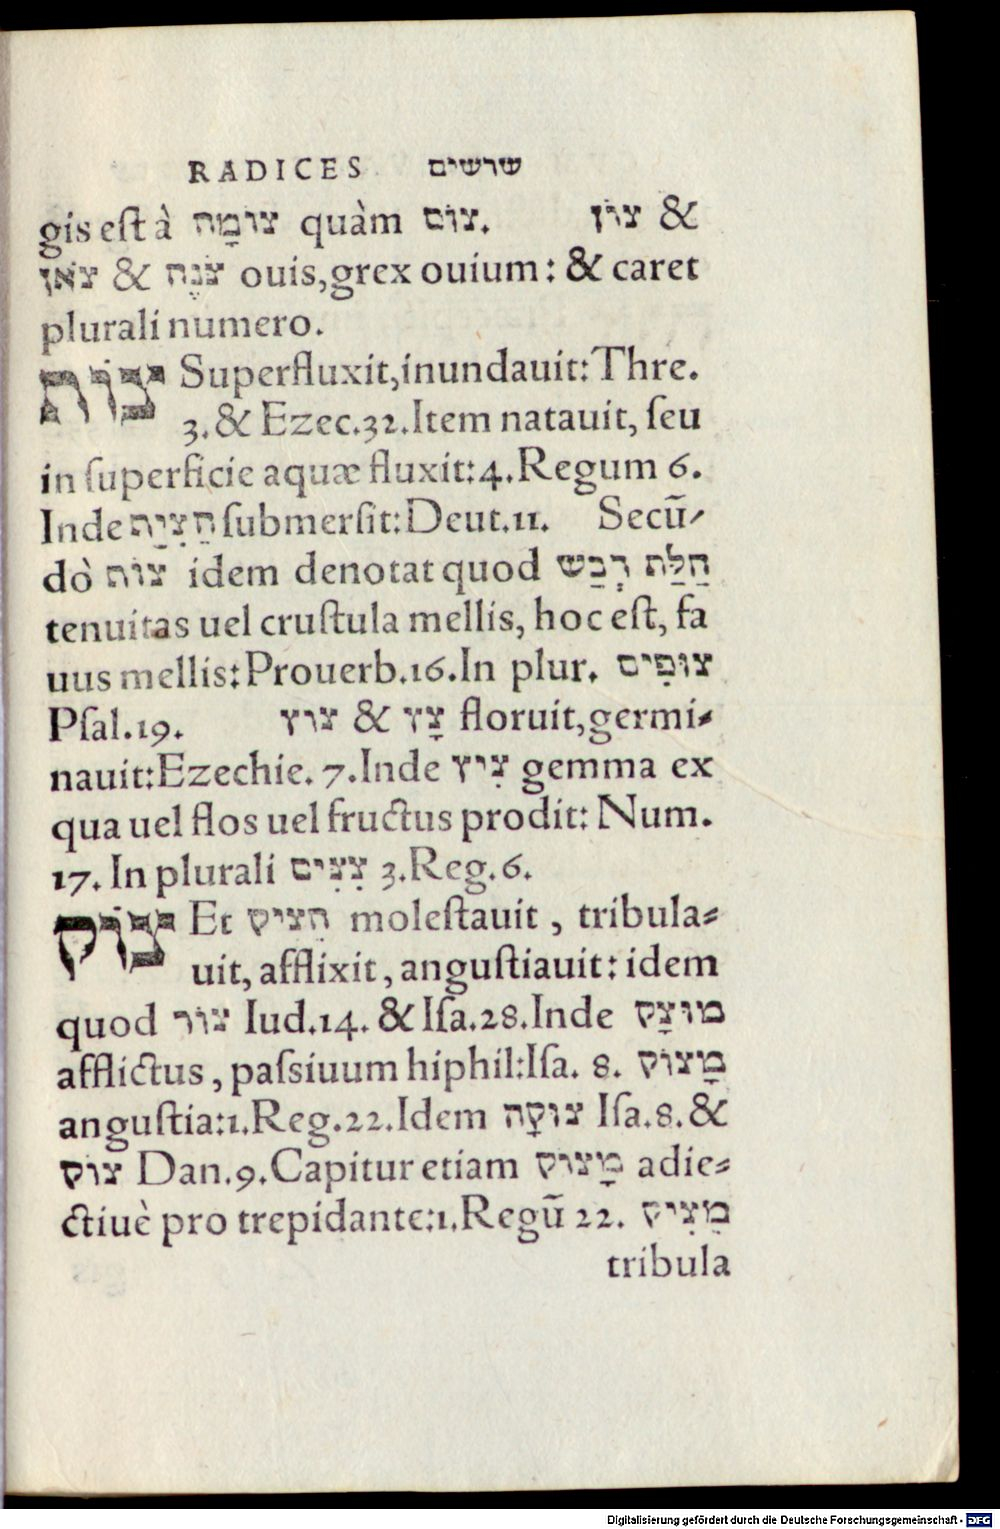 RADICES שרשים
gis eſt à צומָה quàm צוֹם. צוֹן &
צֹאן & צֹנֶה ouis, grex ouium: & caret
plurali numero.
צוֹת Superfluxit, inundauit: Thre.
3. & Ezec. 32. Item natauit, ſeu
in ſuperficie aquæ fluxit: 4. Regum 6.
Inde ſubmerſit: Deut. 11. Secũ⸗
dò צוֹת idem denotat quod חַלַּת דְבַש
tenuitas uel cruſtula mellis, hoc eſt, fa
uus mellis: Prouerb. 16. In plur. צופִים
Pſal. 19. צוץ & צָץ floruit, germi⸗
nauit: Ezechie. 7. Inde צִיץ gemma ex
qua uel flos uel fructus prodit: Num.
17. In plurali צִצִים 3. Reg. 6.
צוֹק Et הִציק moleſtauit, tribula⸗
uit, afflixit, anguſtiauit: idem
quod צוֹר Iud. 14. & Iſa. 28. Inde מוּצָק
afflictus, paſsiuum hiphil: Iſa. 8. מָצוֹק
anguſtia: 1. Reg. 22. Idem צוּקָה Iſa. 8. &
צוֹק Dan. 9. Capitur etiam מָצוֹק adie⸗
ctiuè pro trepidante: 1. Regũ 22. מֵצִיק
tribula
Digitalisierung gefördert durch die Deutsche Forschungsgemeinschaft - DFG